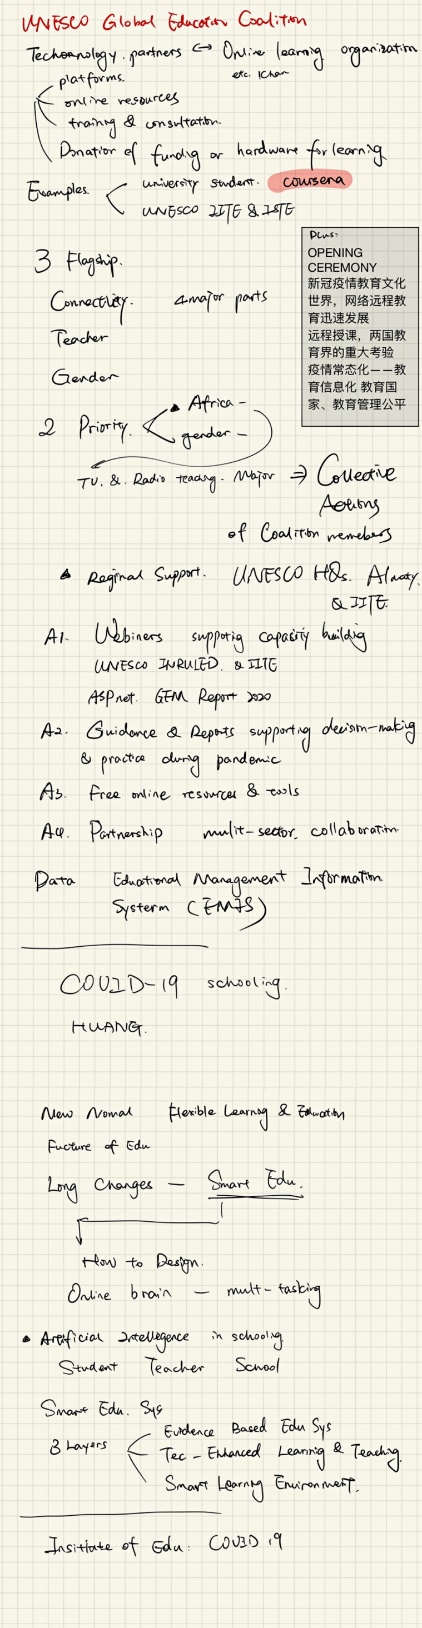 UNESCO Global Education Coalition
Techonology partners ↔ Online learning organization
etc. ICHan
platforms.
online resources
trainig & consultation.
Donation of funding or hardware for learning
Examples
university student. coursera
UNESCO IITE & ISTE
3 Flagship.
Connectivity. 4 major parts
Teacher
Gender
Plus:
OPENING
CEREMONY
新冠疫情教育文化
世界，网络远程教
育迅速发展
远程授课，两国教
育界的重大考验
疫情常态化——教
育信息化 教育国
家、教育管理公平
2 Priority. Africa -
gender -
TV. & Radio teaching. Major ⇒ Collective
Actions
of Coalition memebers
Reginal Support. UNESCO HQs. Almaty.
& IITE.
A1. Webiners supportig capacity building
UNESCO INRULED. & IITE
ASPnet. GEM Report 2020
A2. Guidance & Reports supporting decision-making
& practice during pandemic
A3. Free online resources & tools
A4. Partnership mulit-sector. collaboration
Data Eduational Management Information
Systerm (EMIS)
COVID-19 schooling.
HUANG.
New Nomal Flexible Learnig & Education
Fucture of Edu
Long Changes — Smart Edu.
How to Design.
Online brain — mult-tasking
Artificial Intellegence in schoolig
Student Teacher School
Smart Edu. Sys
3 Layers
Evidence Based Edu Sys
Tec-Enhanced Learnig & Teaching.
Smart Learnig Environment.
Institate of Edu: COVID 19